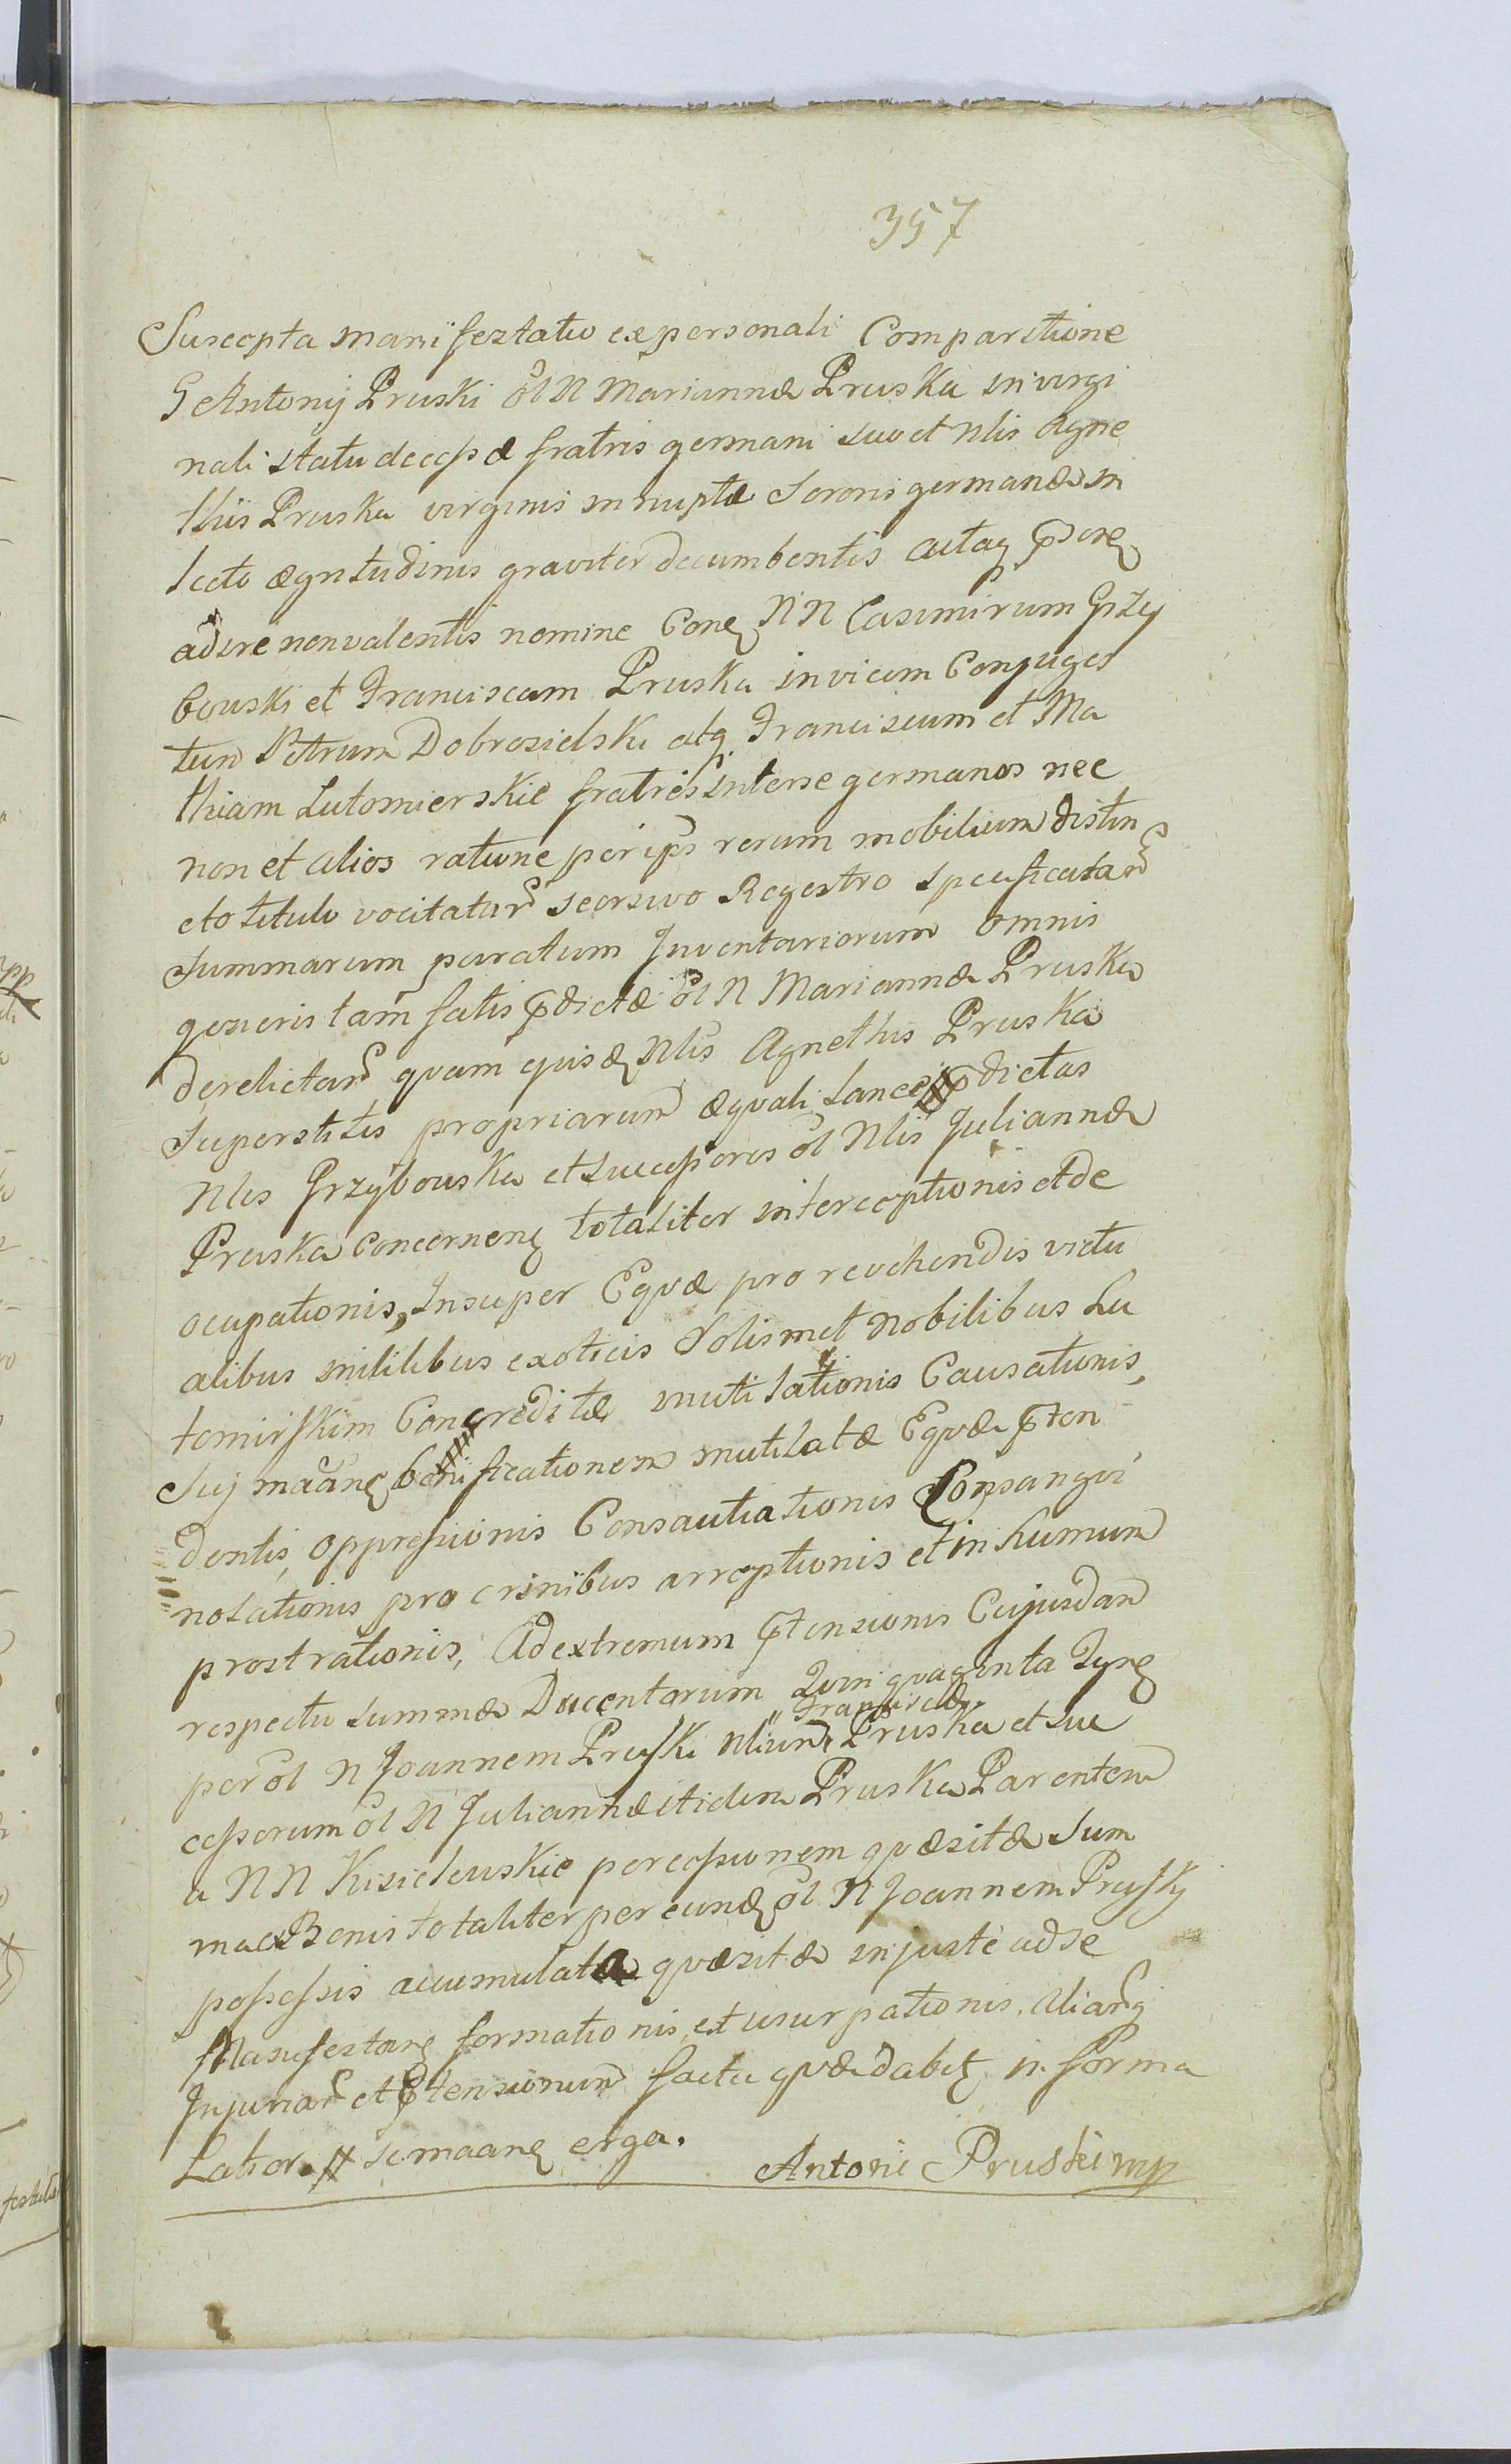 357
Suscepta manifestatio ex personali Comparitione
G Antonij Pruski ol N Mariannæ Pruska in virgi
nali statu decessæ fratris germani suo et Nlis Agne
this Pruska virginis innuptæ Sororis germanæ in
lecto ægritudinis graviter decumbentis actaq
adire non valentis nomine Con NN Casimirum Grzy
bouski et Franciscam Pruska invicem Conjuges
tum Petrum Dobrosielski atq Franciscum et Ma
thiam Lutomierskie fratres inter se germanos nec
non et alios ratione per ips rerum mobilium distin
cto titulo vocitatar seorsivo Regestro specificatar
Summarum paratum Inventariorum omnis
generis tam satis pdictæ ol N Mariannæ Pruska
derelictar quam ejusd Nlis Agnethis Pruska
Superstitis propriarum æquali lance pdictas
Nlis Grzybouska et successores ol Nlis Juliannæ
Pruska concernen totaliter interceptionis et de
ocupationis, Insuper Equæ pro revehendis victu
alibus militibus exoticis Solismet Nobilibus Lu
tomirskim Concreditæ mutilationis Causationis,
Suj maan bonificationem mutilatæ Equæ pten
dentis, oppressionis Consautiationis Consangvi
nolationis pro crinibus arreptionis et in humum
prostrationis, Ad extremum ptensionis Cujusdam
respectu summæ Ducentorum Quinquaginta Tyn
" Franciscæ
per ol N Joannem Pruski Nlium " Pruska et suc
cessorum ol N Juliannæ itidem Pruska Parentem
a NN Kisielewskie per cessionem quæsitæ Sum
mæ Benis totaliter per eund ol N Joannem Prusky
possessis accumulata quæsitæ injuste ad se
Manifestan formationis, et usurpationis. Aliarq
Injuriar et Ptensionum facta quæ dabit in forma
Latior. # se maan erga.
Antoni Pruski mp